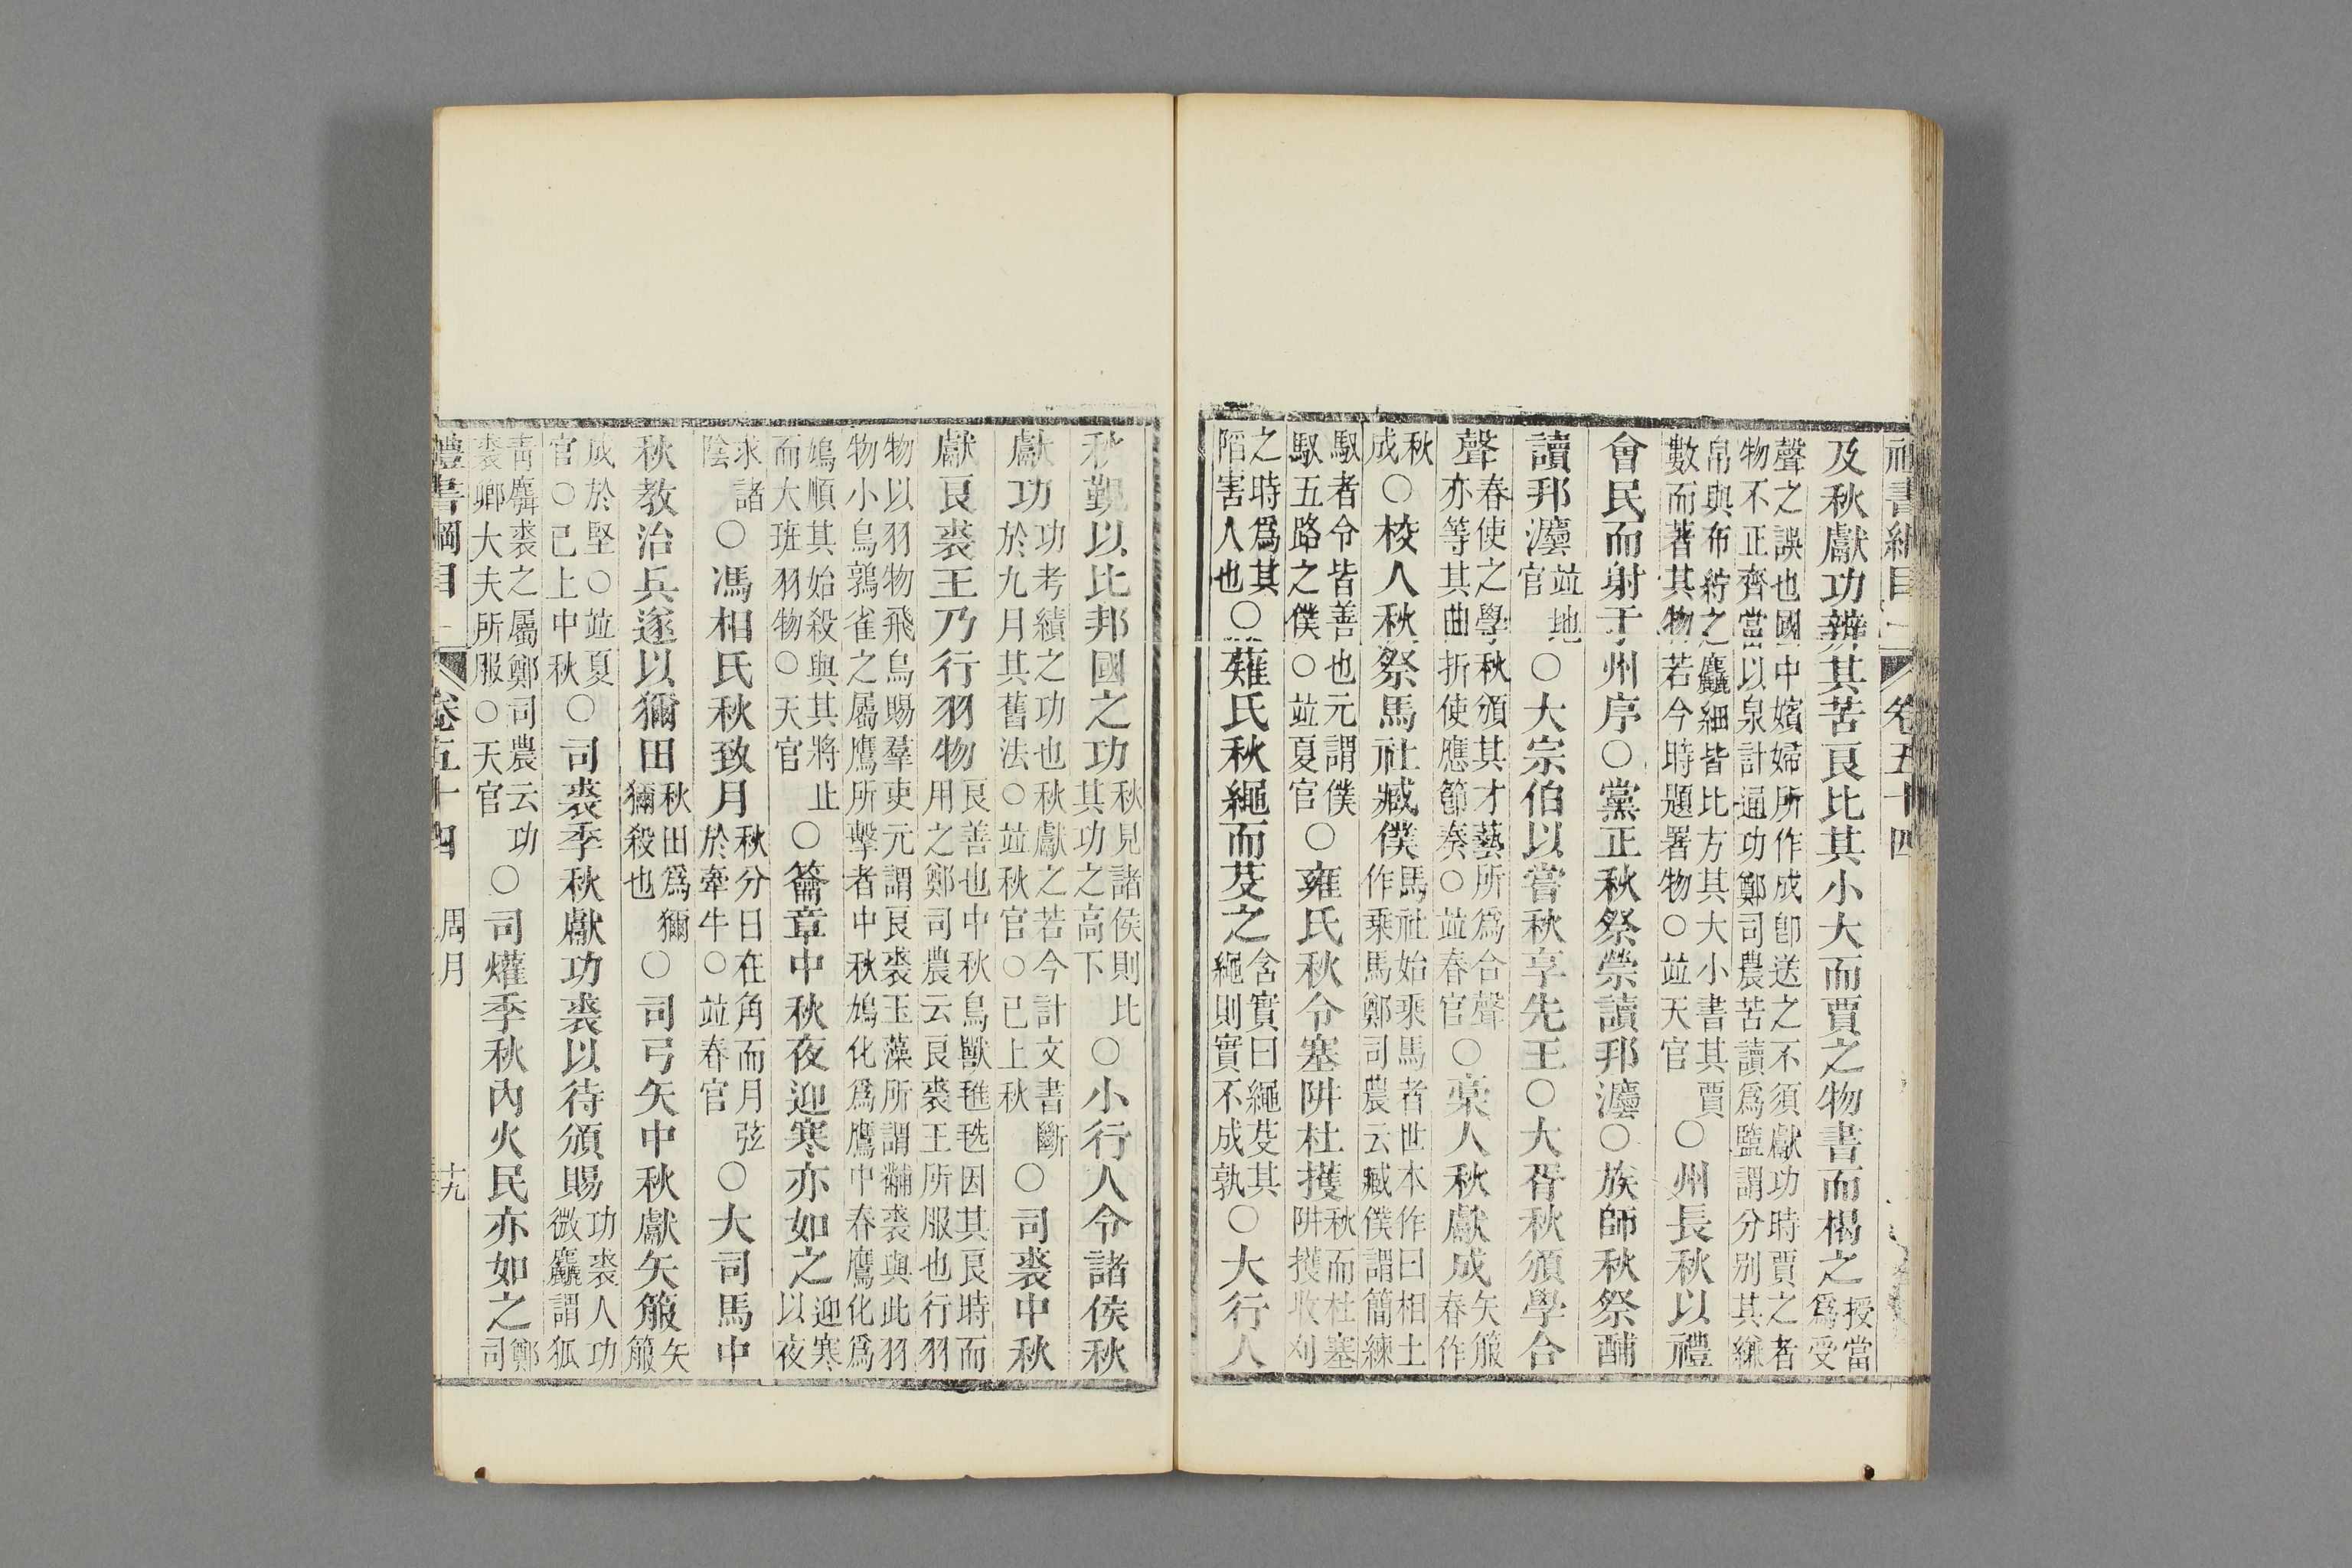 禮書綱目 卷五十四
及秋獻功辨其苦良比其小大而賈之物書而楬之授當爲受
聲之誤也國中嬪婦所作成卽送之不須獻功時賈之者
物不正齊當以泉計通功鄭司農苦讀爲盬謂分別其縑
帛與布紵之麤細皆比方其大小書其賈
數而著其物若今時題署物○竝天官○州長秋以禮
會民而射于州序○黨正秋祭禜讀邦灋○族師秋祭酺
讀邦灋竝地官○大宗伯以嘗秋享先王○大胥秋頒學合
聲春使之學秋頒其才藝所爲合聲
亦等其曲折使應節奏○竝春官○稾人秋獻成矢箙春作
秋成○校人秋祭馬社臧僕馬社始乘馬者世本作曰相土
作乗馬鄭司農云臧僕謂簡練
馭者令皆善也元謂僕
馭五路之僕○竝夏官○雍氏秋令塞阱杜擭秋而杜塞
阱擭收刈
之時爲其
陷害人也○薙氏秋繩而芟之含實曰繩芟其
繩則實不成孰○大行人
秋覲以比邦國之功秋見諸侯則比
其功之高下○小行人令諸侯秋
獻功功考績之功也秋獻之若今計文書斷
於九月其舊法○竝秋官○已上秋○司裘中秋
獻良裘王乃行羽物良善也中秋鳥獸毨毨因其良時而
用之鄭司農云良裘王所服也行羽
物以羽物飛鳥賜羣吏元謂良裘玉藻所謂黼裘與此羽
物小鳥鶉雀之屬鷹所擊者中秋鳩化爲鷹中春鷹化爲
鳩順其始殺與其將止
而大班羽物○天官○籥章中秋夜迎寒亦如之迎寒以夜
求諸陰○馮相氏秋致月秋分日在角而月弦
於牽牛○竝春官○大司馬中
秋教治兵遂以獮田秋田爲獮
獮殺也○司弓矢中秋獻矢箙矢箙
成於堅○竝夏
官○已上中秋○司裘季秋獻功裘以待頒賜功裘人功
微麤謂狐
靑麛裘之屬鄭司農云功
裘卿大夫所服○天官○司爟季秋內火民亦如之鄭司
禮書綱目 卷五十四 周月 十九